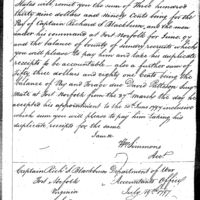 States will remit you the sum of Three hundred
thirty nine dollars and ninety Cents being the
Pay of Captain Richard L Blackburn, and the men
under his command at Fort Norfolk for June. 97
and the balance of bounty of Sundry recruits which
you will please to pay him and take his duplicate
receipts to be accountable. also a further sum of
Fifty three dollars and eighty one Cents being the
Balance of Pay and Forage due David Pattison Surg
mate at Fort Norfolk from the 27th March the day he
accepted his appointment to the 30th June 1797 inclusive
which sum you will please to pay him taking his
duplicate receipts for the same.
I am &c
Wm Simmons
Acct.
Captain Rich. L Blackburn
Fort Norfolk
Virginia
Department of War
Accountants Office
July 19th 1797